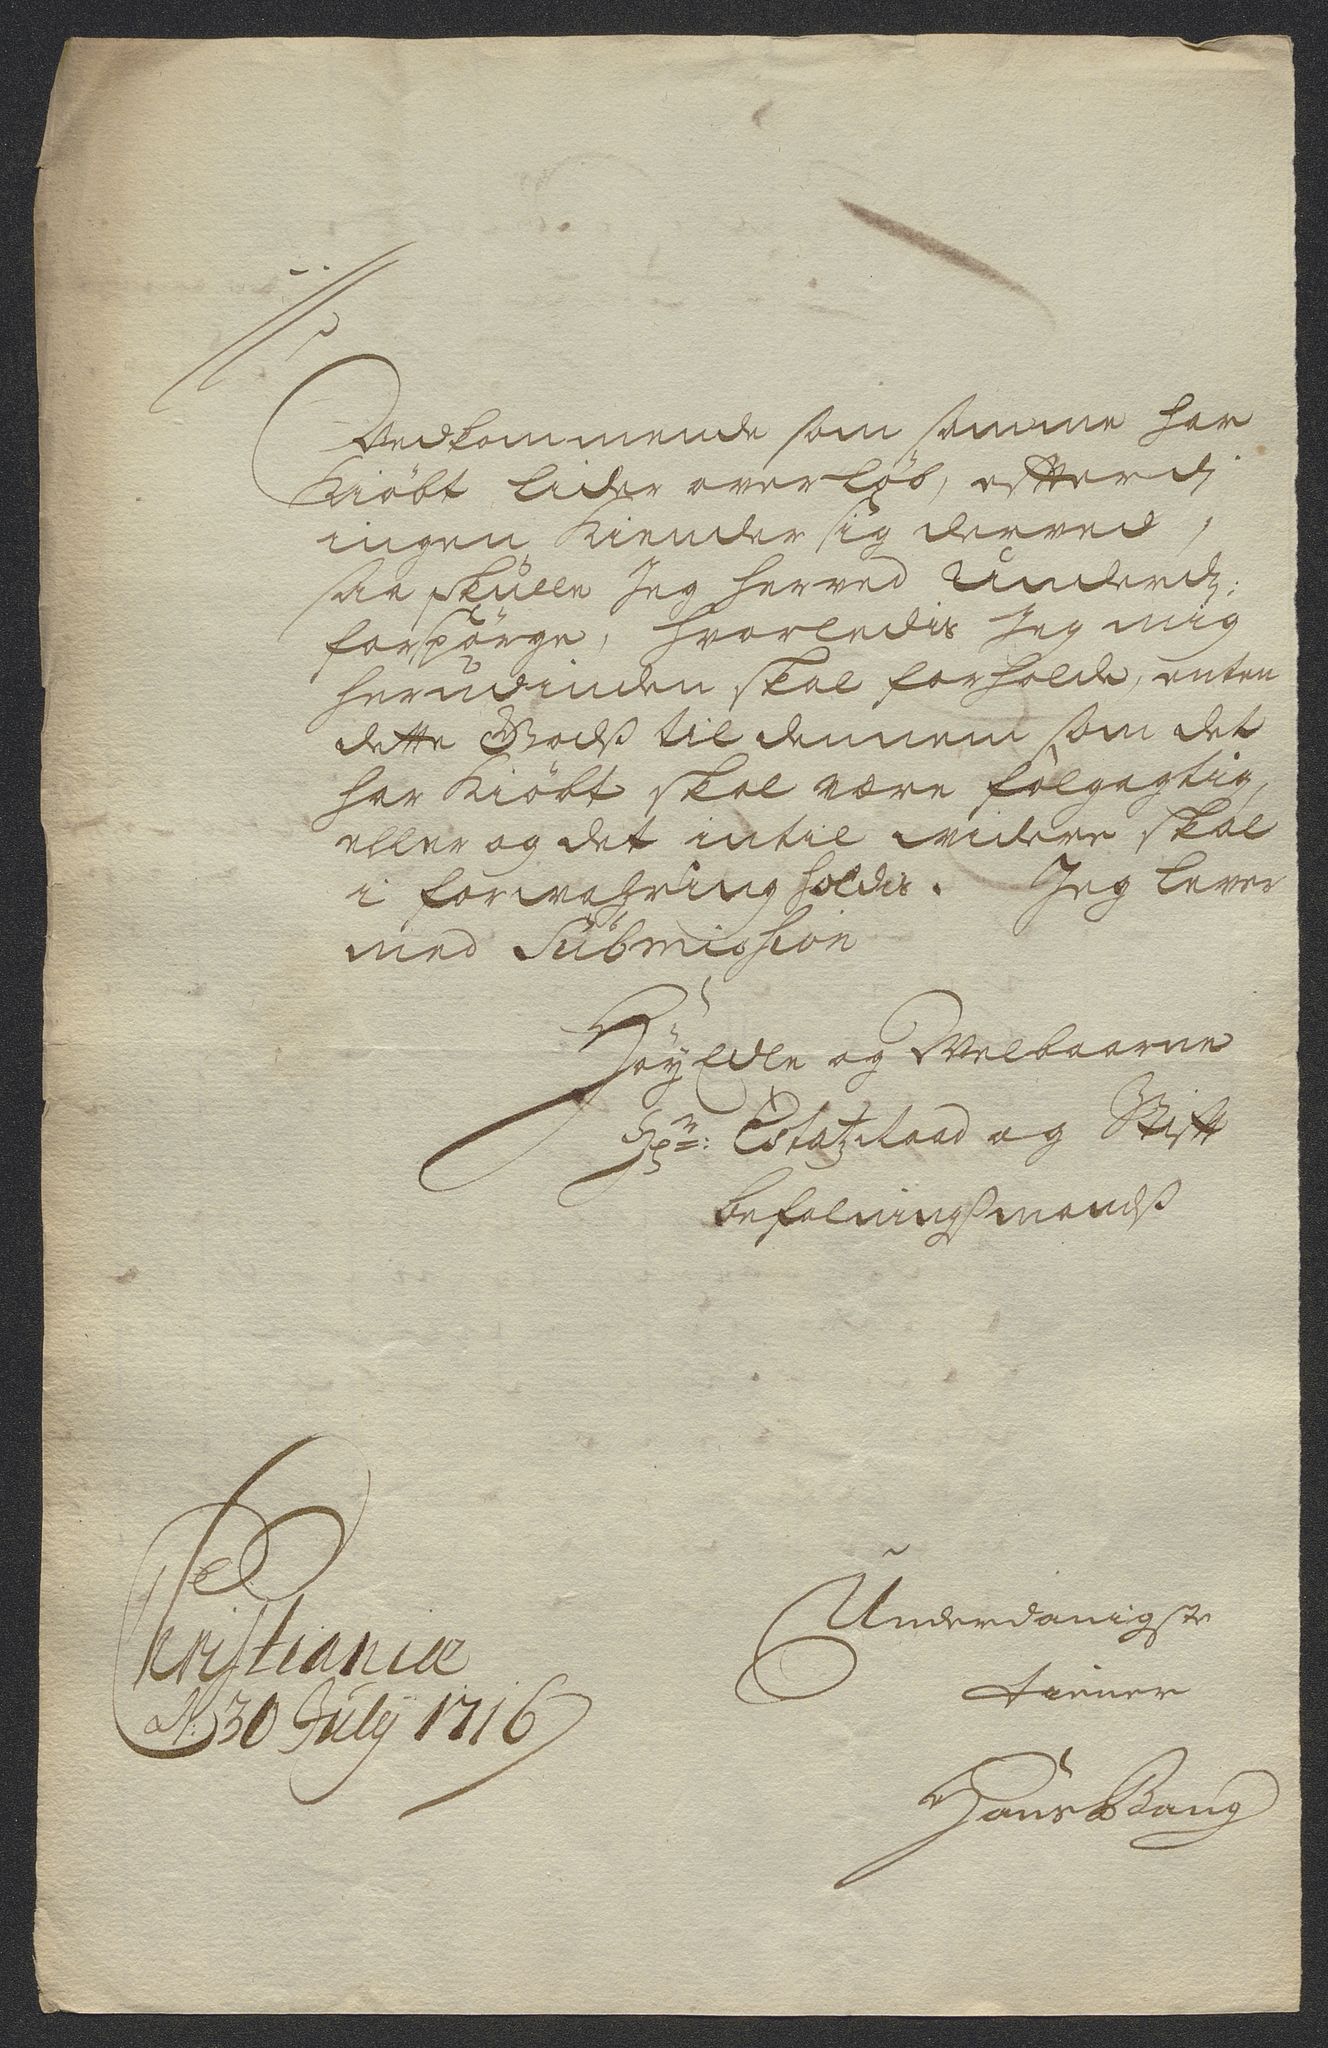 Vedkommende som samme har
Kiöbt lider overløb, efterdj
ingen Kiender sig derved,
saa skulle Jeg herved Underd:
forspörge, hvorledis Jeg mig
herudinden skal forholde, enten
dette Godß til dennem som det
har Kiöbt skal være fölgagtig,
eller og det intil videre skal
i forvahring holdis. Jeg lever
med Submission
HöyEdle og Velbaarne
Hr: EstatzRaad og Stift
befalningßmandß
Christianiæ
d: 30 July 1716
Underdanigste
tiener
Hans Bang